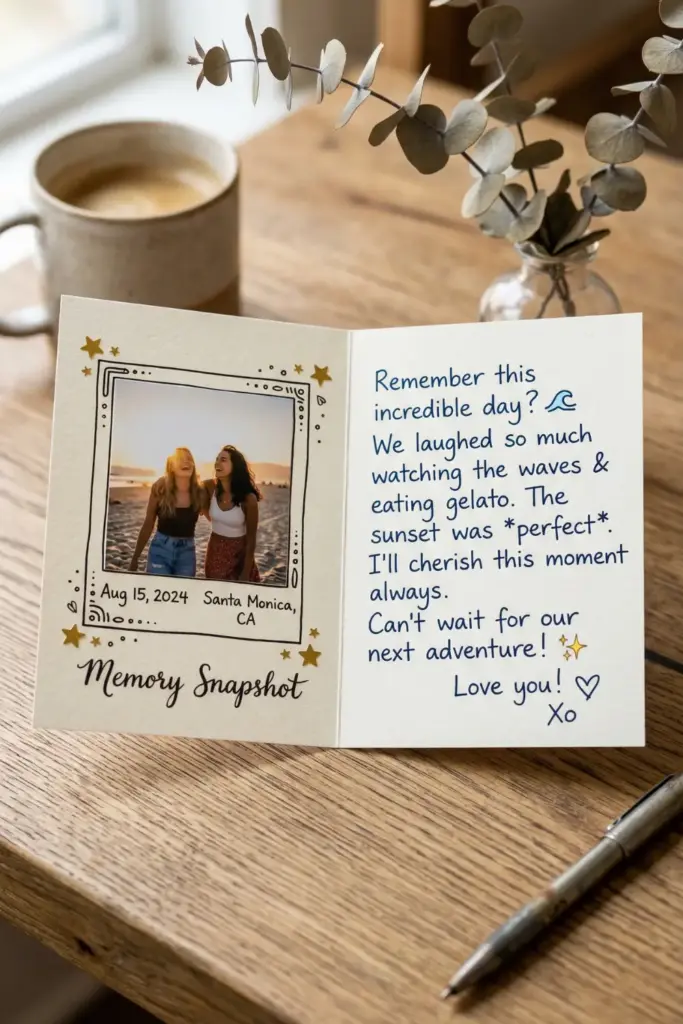 Aug 15, 2024 Santa Monica,
CA
Memory Snapshot
Remember this
incredible day? 🌊
We laughed so much
watching the waves &
eating gelato. The
sunset was *perfect*.
I'll cherish this moment
always.
Can't wait for our
next adventure! ✨
Love you! ♡
Xo